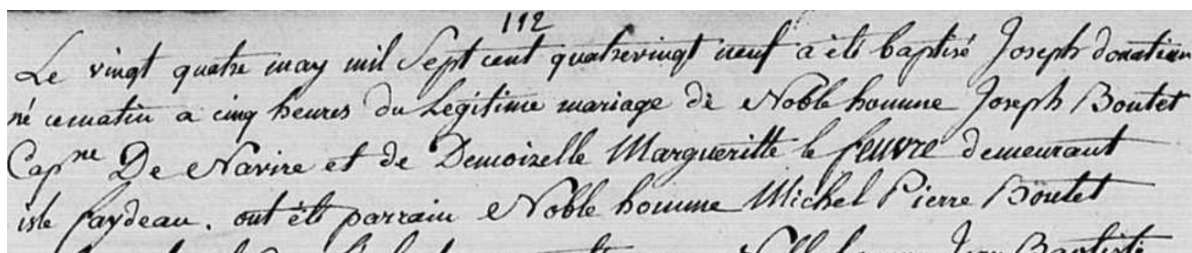 112
Le vingt quatre may mil Sept cent quatrevingt neuf a été baptisé Joseph donatien
né cematin a cinq heures du Légitime mariage de Noble homme Joseph Boutet
Capne De Navire et de Demoizelle Margueritte le feuvre demeurant
isle faydeau. ont été parrain Noble homme Michel Pierre Boutet